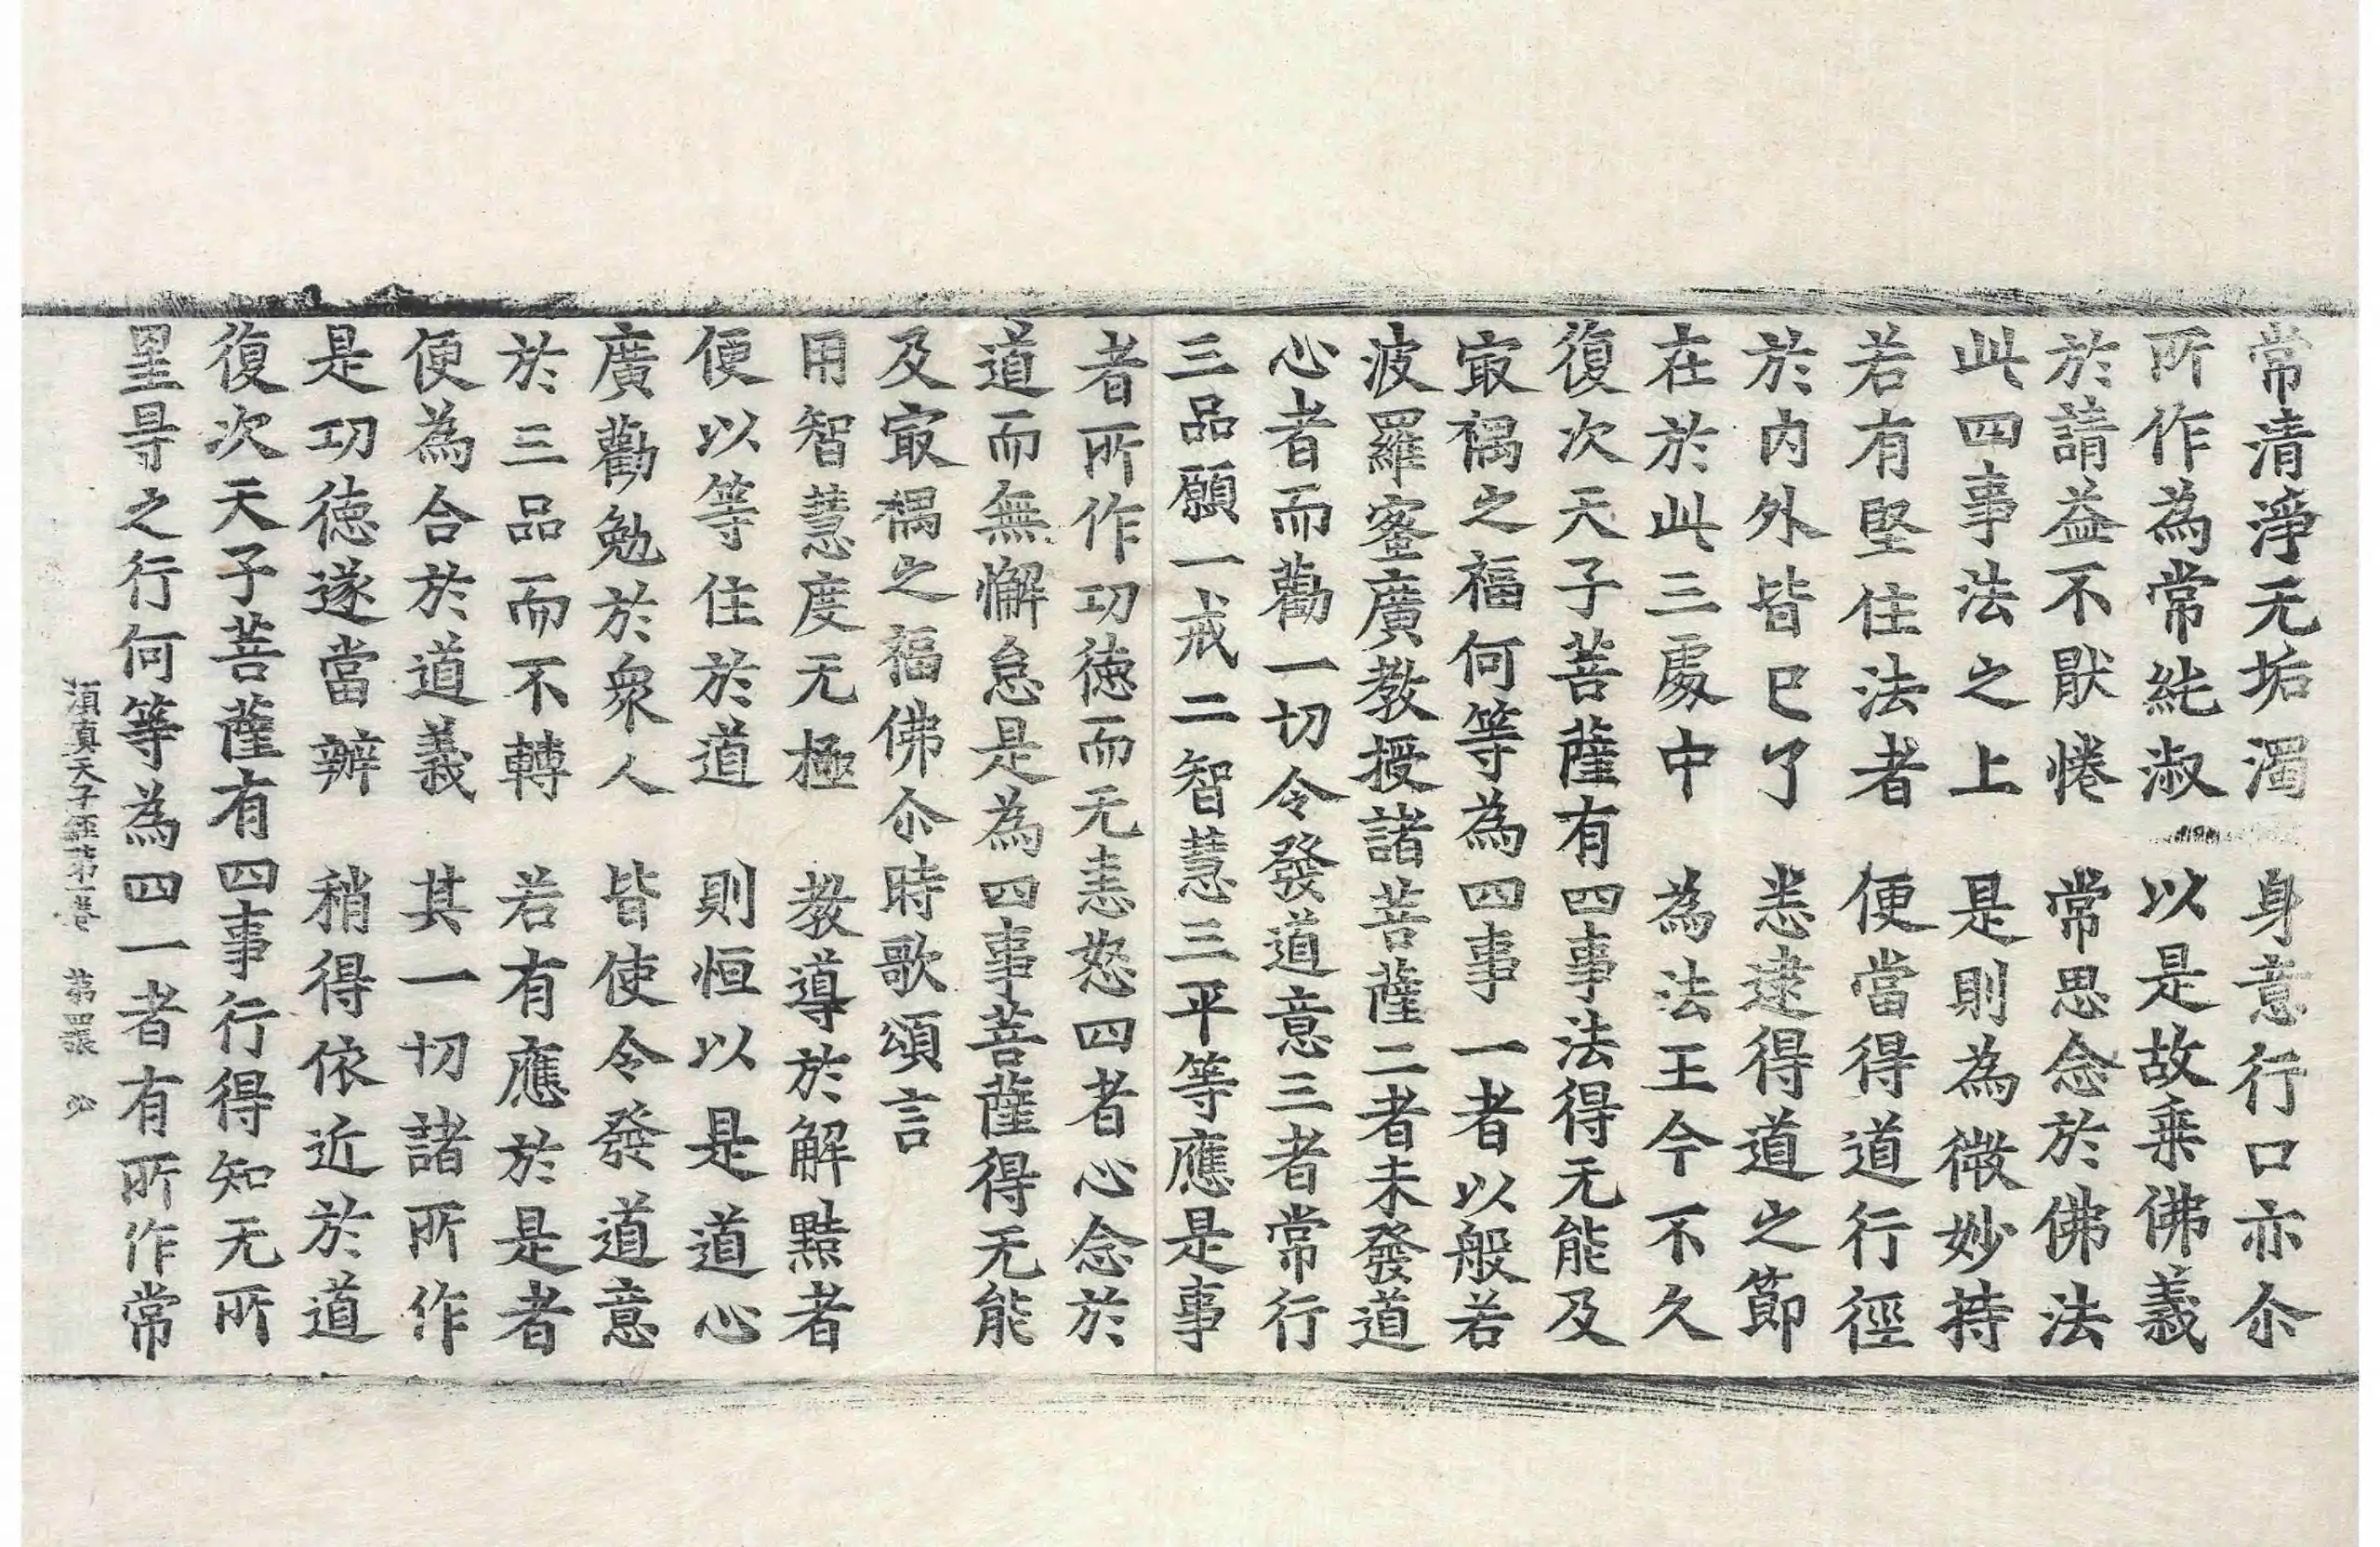 常清淨无垢濁　身意行口亦尒
所作為常純淑　以是故乗佛義
於請益不猒惓　常思念於佛法
此四事法之上　是則為微妙持
若有堅住法者　便當得道行徑
於内外皆已了　悉逮得道之節
在於此三處中　為法王今不久
復次天子菩薩有四事法得无能及
㝡褐之福何等為四事一者以般若
波羅蜜廣教授諸菩薩二者未發道
心者而勸一切令發道意三者常行
三品願一戒二智慧三平等應是事
者所作功德而无恚怒四者心念於
道而無懈怠是為四事菩薩得无能
及㝡褐之福佛尒時歌頌言
用智慧度无極　教導於解黠者
便以等住於道　則恒以是道心
廣勸勉於衆人　皆使令發道意
於三品而不轉　若有應於是者
便為合於道義　其一切諸所作
是功德遂當辦　稍得依近於道
復次天子菩薩有四事行得知无所
罣㝵之行何等為四一者有所作常
須真天子經第一卷　第四張　少